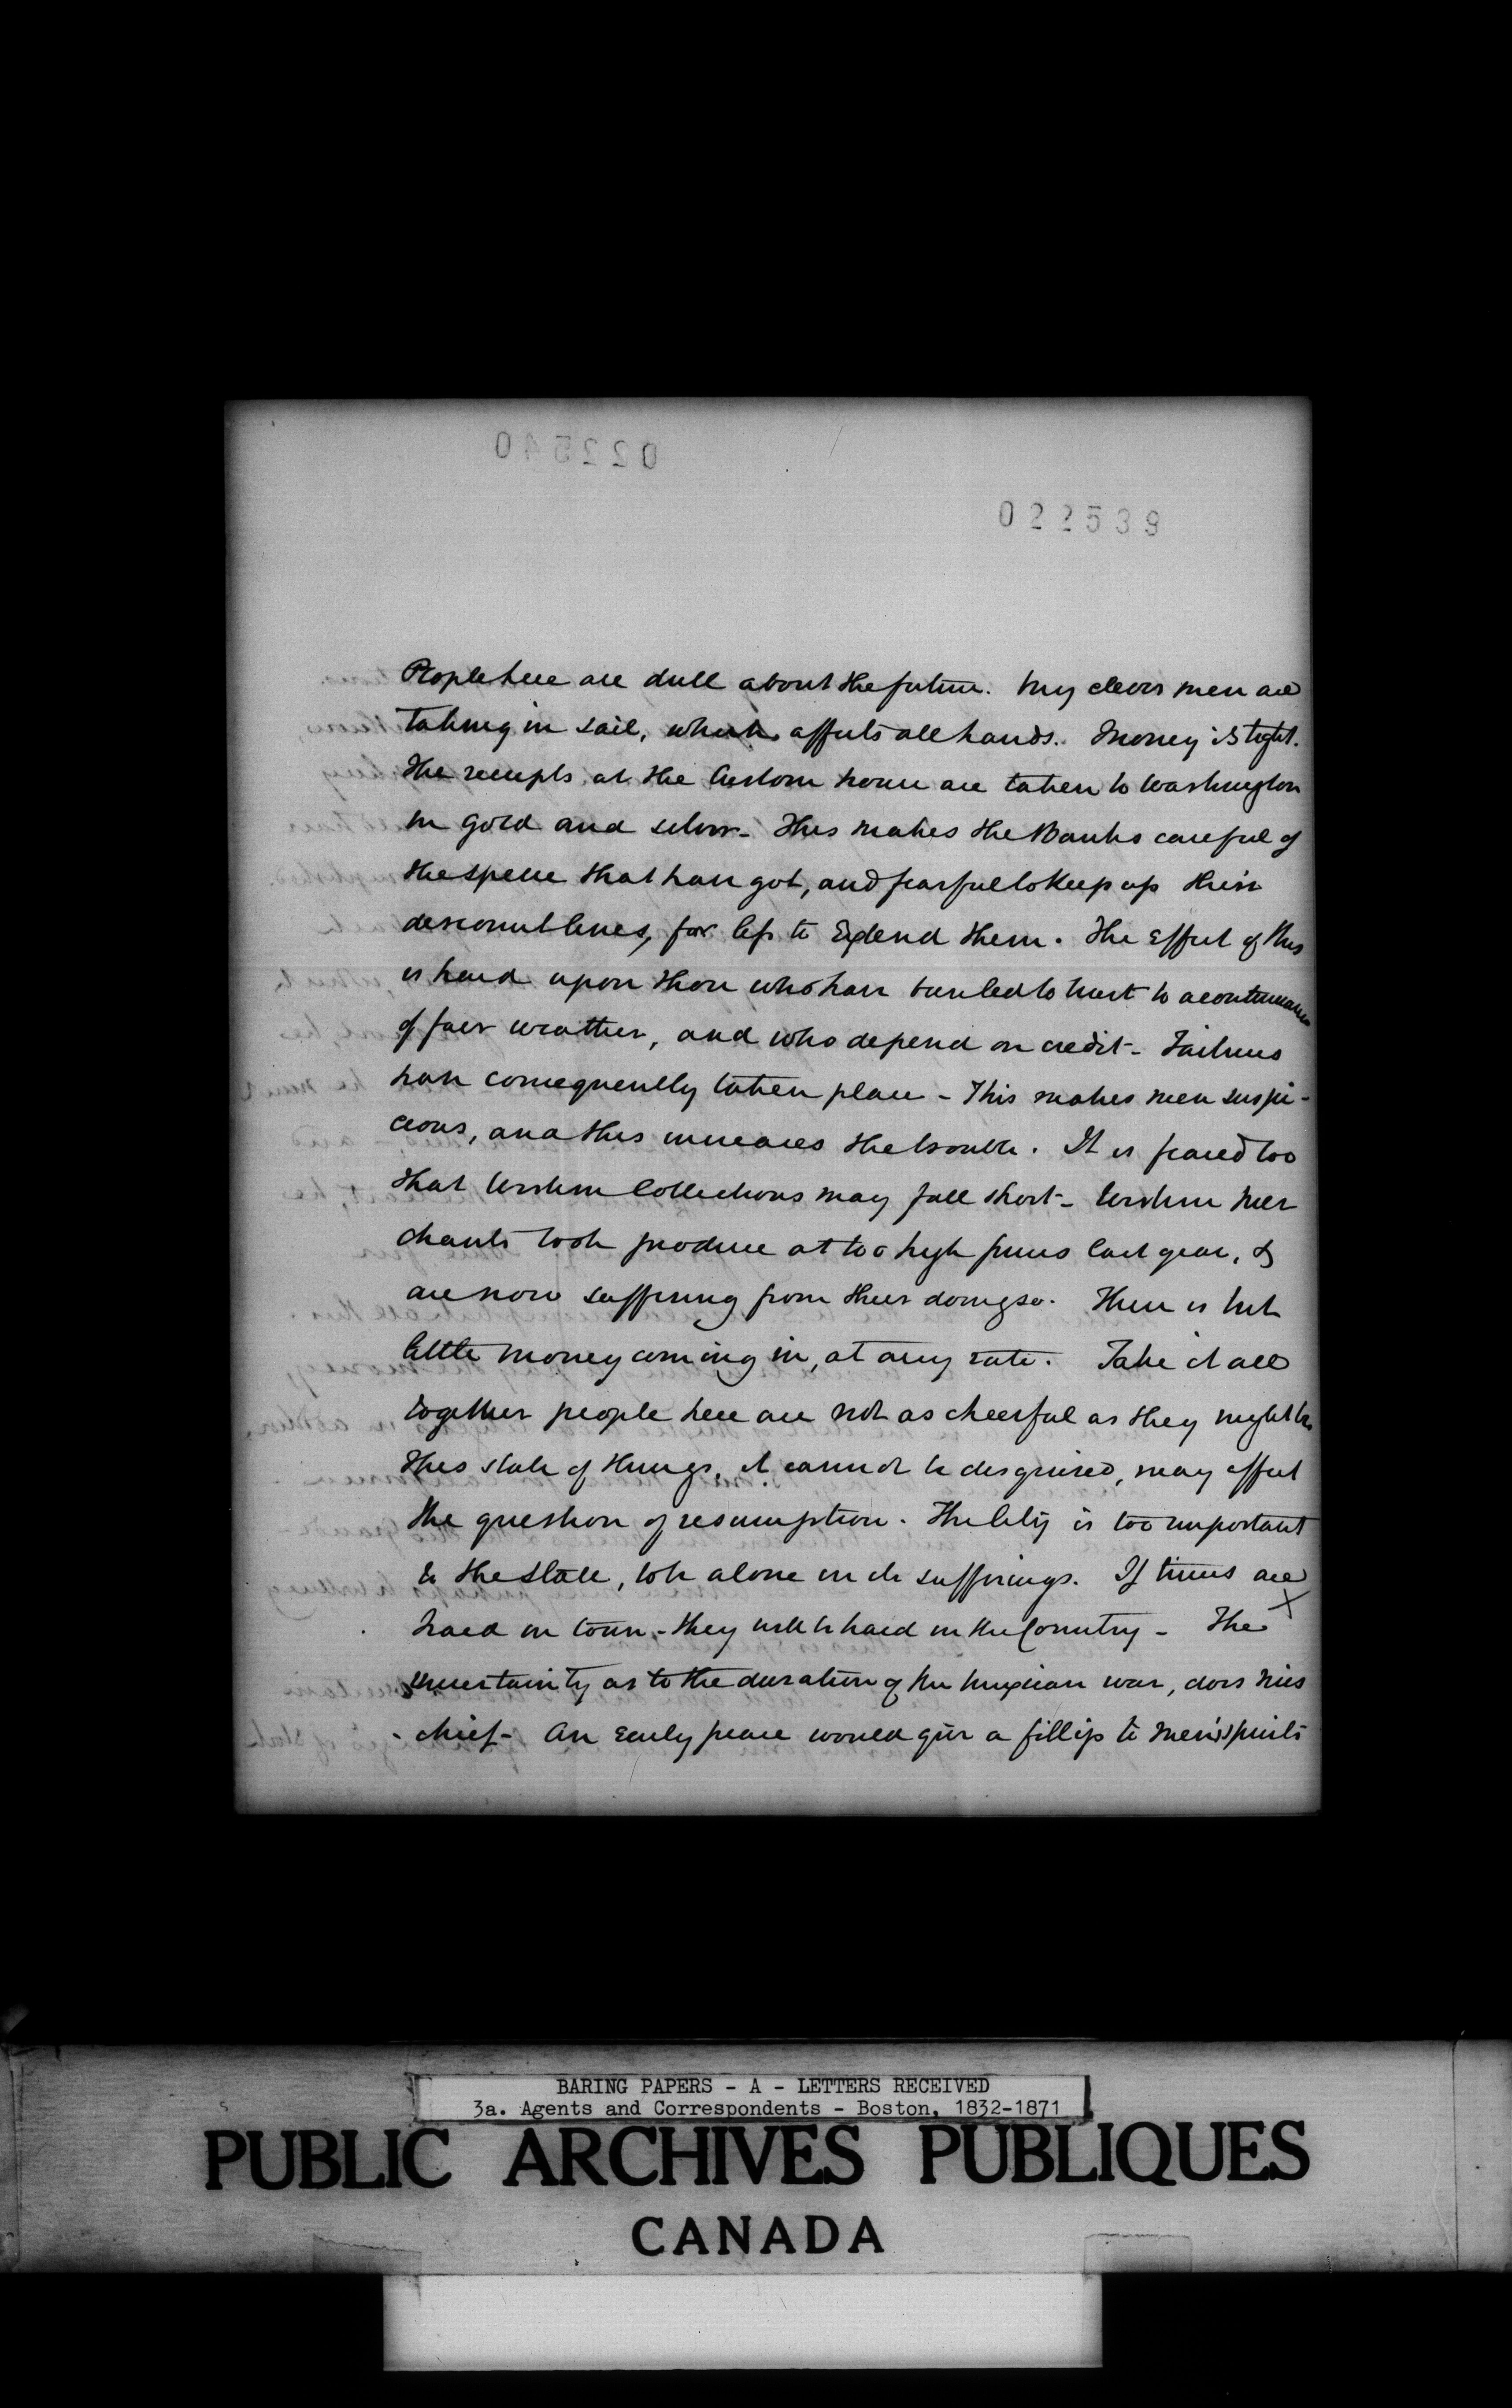 022540
022539
People here are dull about the future. Very clever men are
taking in sail, which affects all hands. Money is tight.
The receipts at the Custom house are taken to Washington
in gold and silver - This makes the Banks careful of
the specie that have got, and fearful to keep up their
discount lines, far less to Extend them. The Effect of this
is hard upon those who have to trust to a continuance
of fair weather, and who depend on credit - Failures
have consequently taken place - This makes men suspi-
cious, and this increases the trouble. It is feared too
that Western Collections may fall short - Western Mer
chants took produce at too high prices last year, &
are now suffering from their doing so. There is but
little money coming in, at any rate. Take it all
together people here are not as cheerful as they might be
This state of things, it cannot be disguised, may affect
the question of resumption. The City is too important
to the State, to be alone in its sufferings. If times are
hard in town - they will be hard in the Country - The
uncertainty as to the duration of the Mexican war, does mis
- chief - An Early peace would give a fillip to men's spirits
BARING PAPERS - A - LETTERS RECEIVED
3a. Agents and Correspondents - Boston, 1832-1871
PUBLIC ARCHIVES PUBLIQUES
CANADA